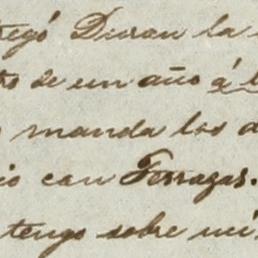 regó Duran la
de un año á l
manda los d
io con Terrazas.
tengo sobre mi